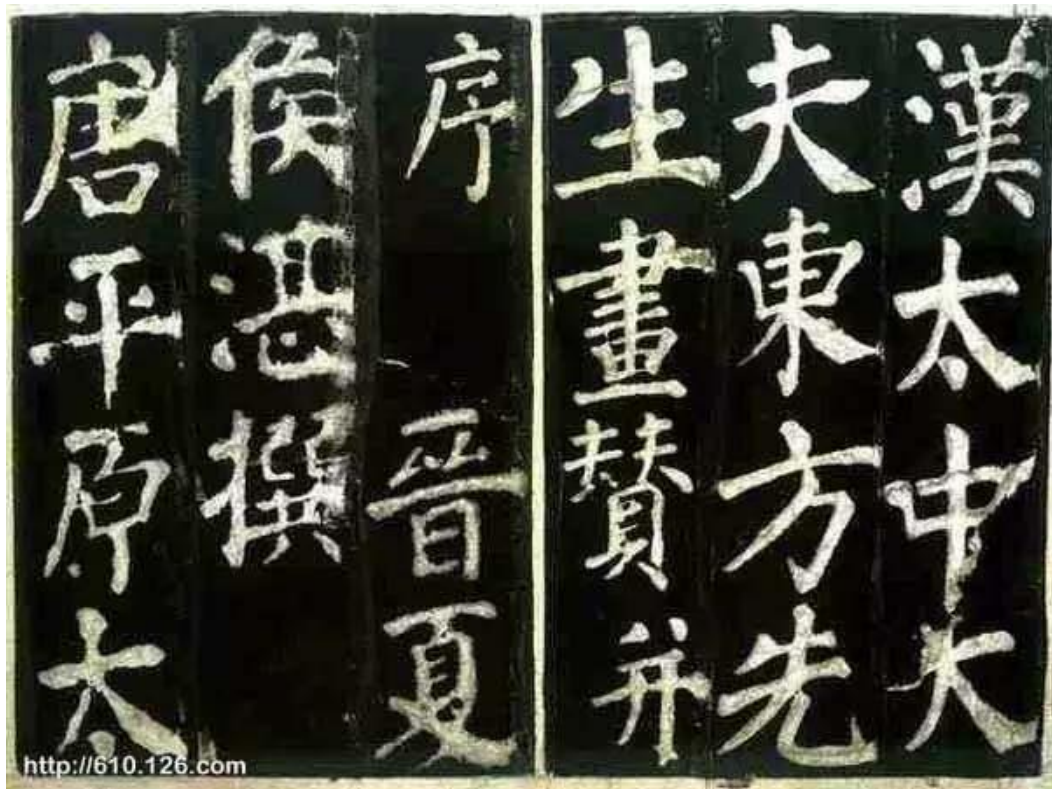 漢太中大
夫東方先
生畫賛并
序 晉夏
侯湛撰
唐平原太
http://610.126.com